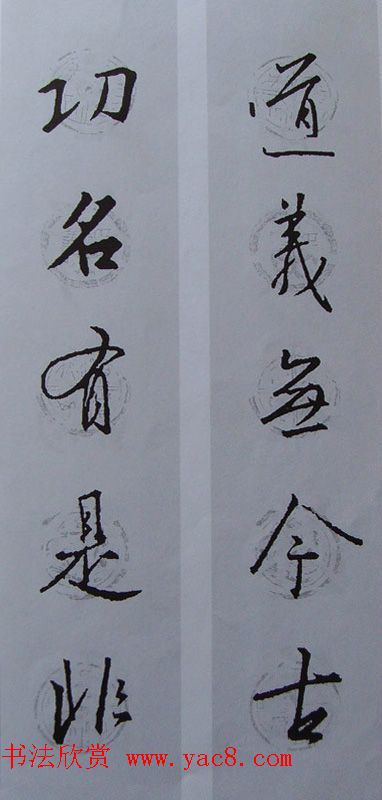 道義無今古
功名有是非
书法欣赏 www.yac8.com